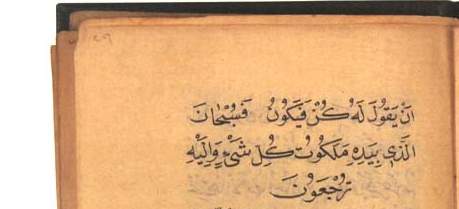 اَنْ يَقُولَ لَهُ كُنْ فَيَكُونُ فَسُبْحَانَ
الَّذِى بِيَدِهِ مَلَكُوتُ كُلِّ شَىْءٍ وَاِلَيْهِ
تُرْجَعُونَ